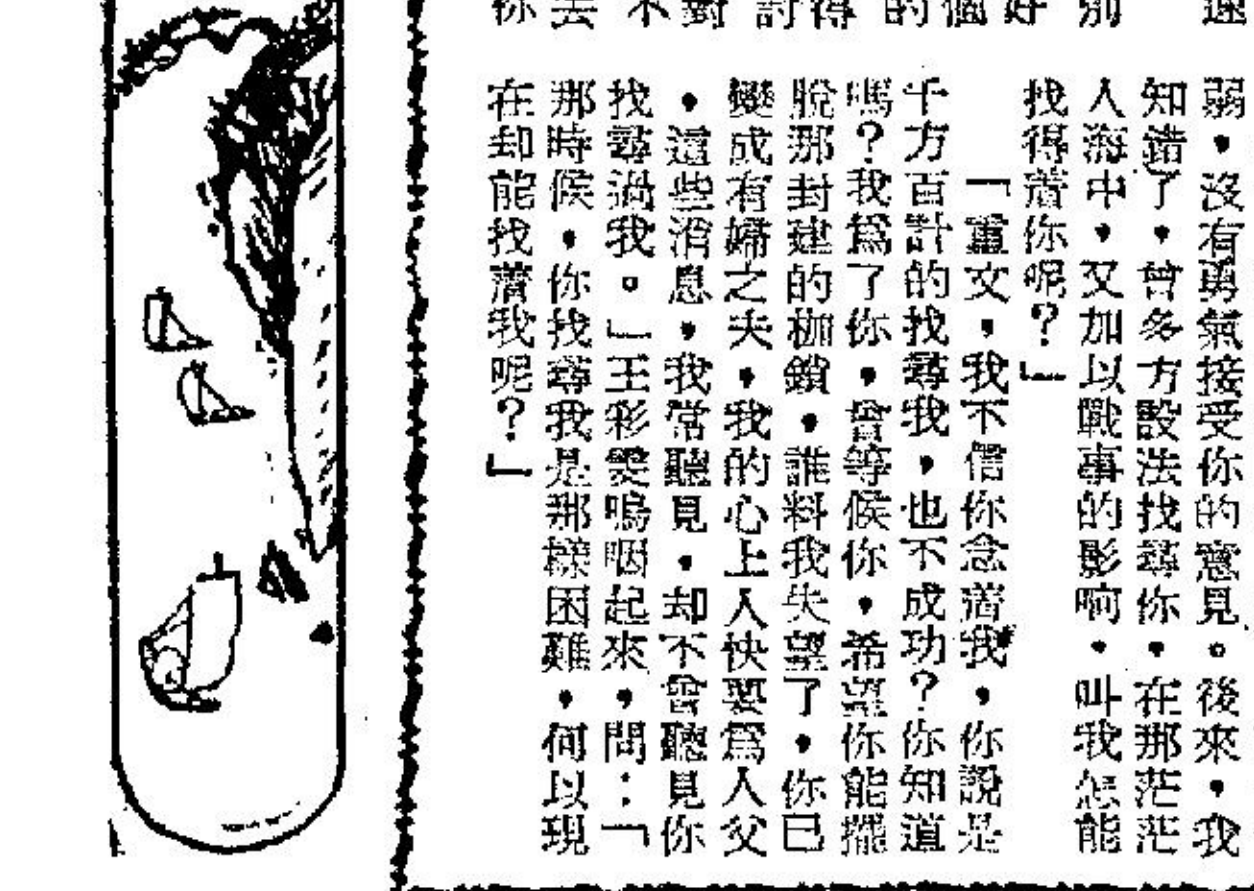 速
別
好
個
的
得
討
對
不
去
你
弱，沒有勇氣接受你的意見。後來，我
知錯了，曾多方設法找尋你，在那茫茫
人海中，又加以戰事的影响，叫我怎能
找得着你呢？」
「文，我不信你念着我，你說是
千方百計的找尋我，也不成功？你知道
嗎？我爲了你，曾等候你，希望你能擺
脫那封建的枷鎖，誰料我失望了，你已
變成有婦之夫，我的心上人快要爲人父
，這些消息，我常聽見，却不曾聽見你
找尋過我。」王彩雯嗚咽起來，問：「
那時候，你找尋我是那樣困難，何以現
在却能找着我呢？」